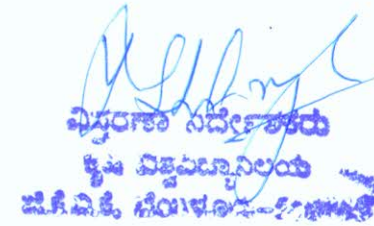 ವಿಸ್ತರಣಾ ನಿರ್ದೇಶಕರು
ಕೃಷಿ ವಿಶ್ವವಿದ್ಯಾನಿಲಯ
ಜಿ.ಕೆ.ವಿ.ಕೆ, ಬೆಂಗಳೂರು-